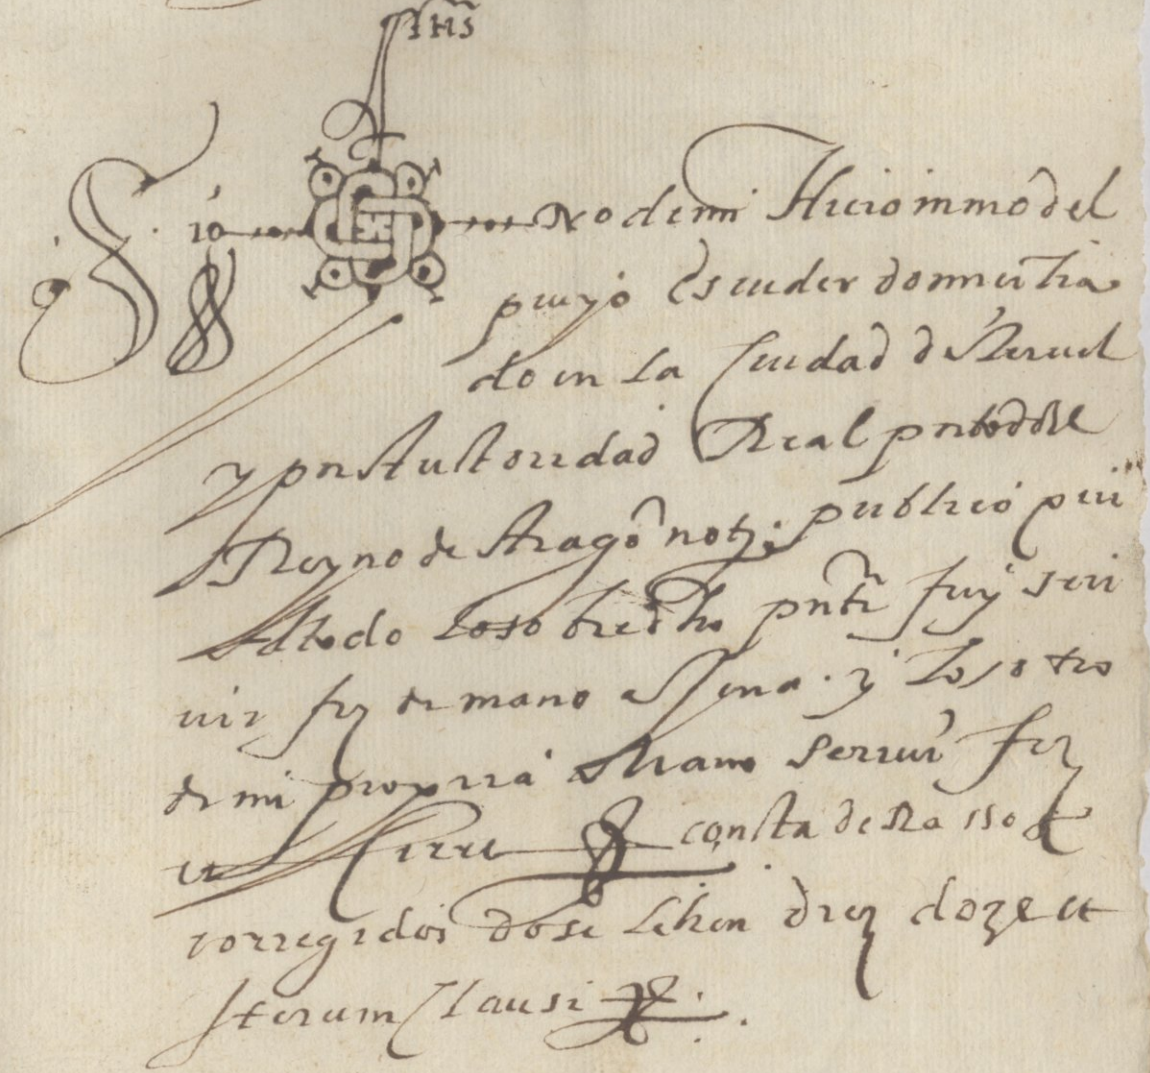 Jhs
Sig no de mi Hieronimo del
pueyo Escuder domicilia
do en la Ciudad de Teruel
y por Auctoridad Real por todo el
Reyno de Arago notº publico qui
a todo lo sobredho pnte fuy scri
uir fiz de mano agena y lo sotro
de mi propria Mano scriui fiz
et Cerre consta de Rasso
corregidos do se lehen diez doze et
iterum Clausi